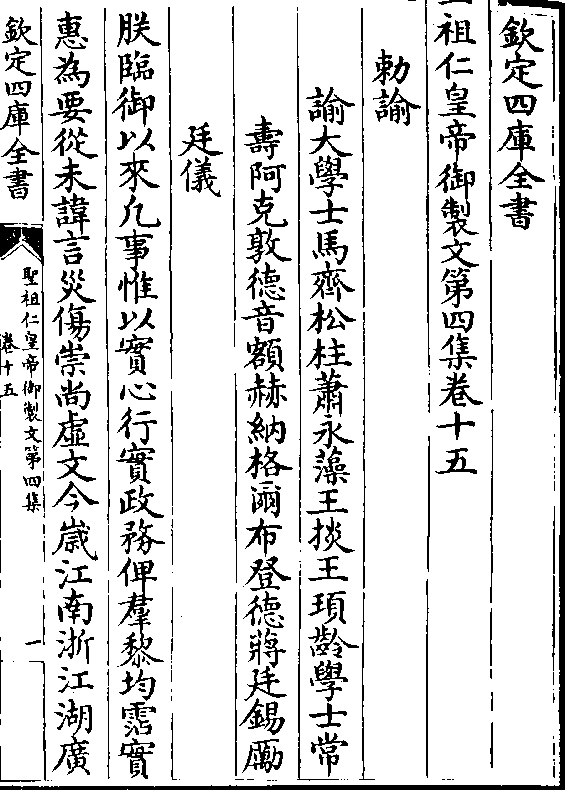 欽定四庫全書
祖仁皇帝御製文第四集卷十五
勅諭
諭大學士馬齊松柱蕭永藻王掞王頊齡學士常
壽阿克敦德音額赫納格爾布登德蔣廷錫勵
廷儀
朕臨御以來凡事惟以實心行實政務俾羣黎均霑實
惠為要從未諱言災傷崇尚虛文今歲江南浙江湖廣
欽定四庫全書
聖祖仁皇帝御製文第四集
卷十五
一